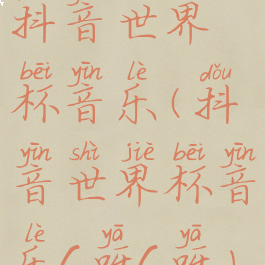 抖音世界
bēi yīn lè dǒu
杯音乐(抖
yīn shì jiè bēi yīn
音世界杯音
lè yā yā
乐(呀(呀)